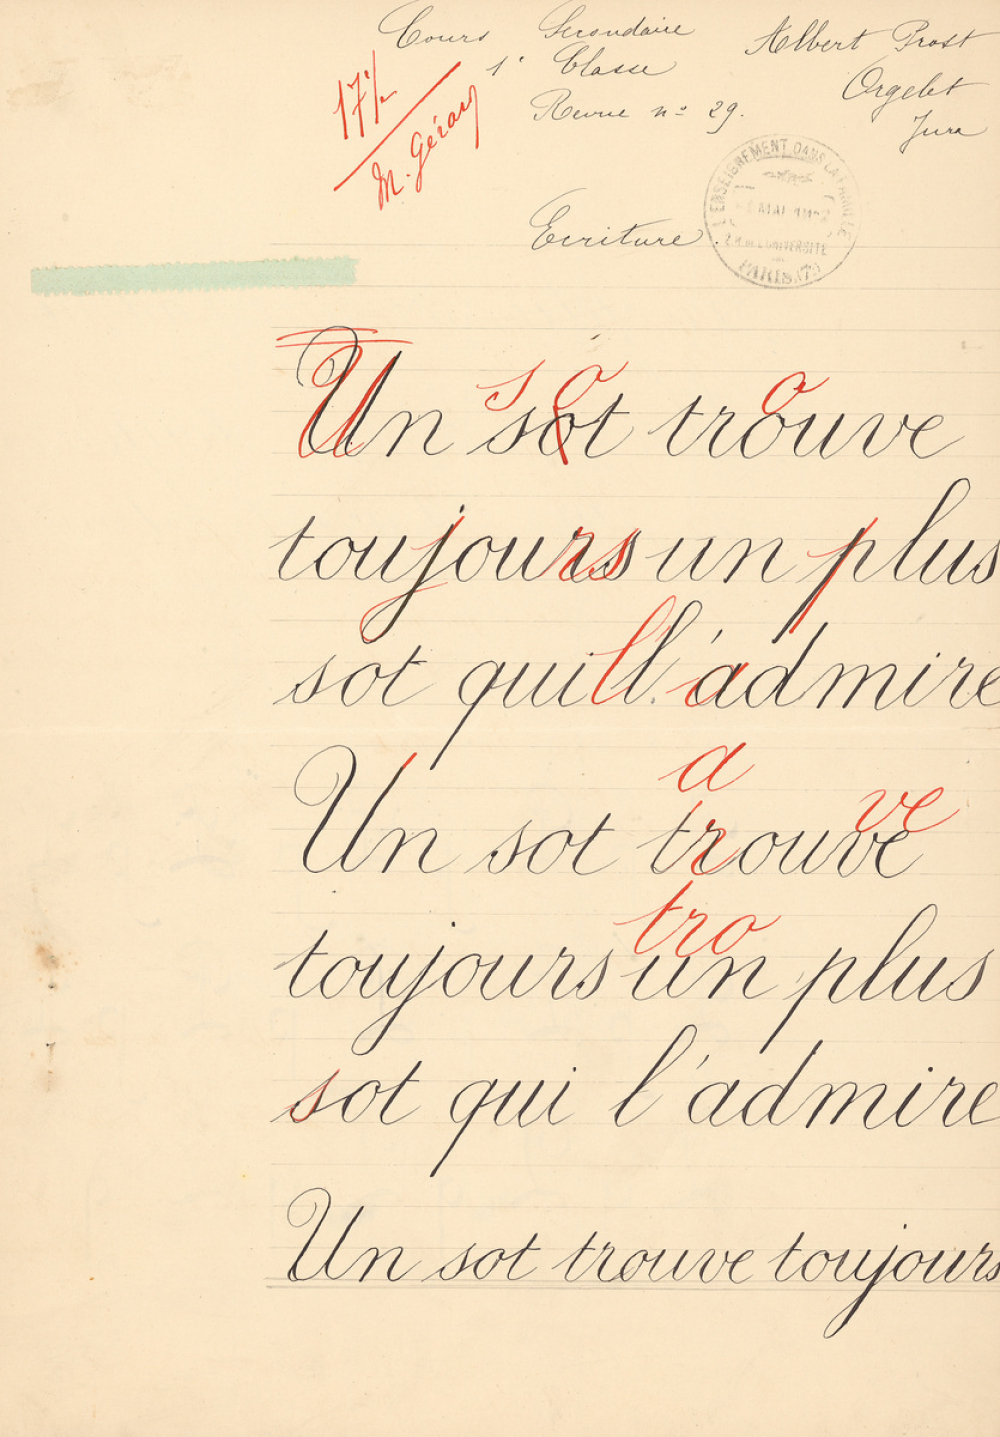 Cours Secondaire Albert Prost
1e Classe Orgelet
Revue no 29. Jura
17 1/2
M. Gérard
L'ENSEIGNEMENT DANS LA FAMILLE
MAI
2 R. DE L'UNIVERSITÉ
PARIS (7e)
Ecriture.
U s o o
Un sot trouve
toujours un plus
sot qui l'admire
a
ve
Un sot trouve
tro
toujours un plus
sot qui l'admire
Un sot trouve toujours